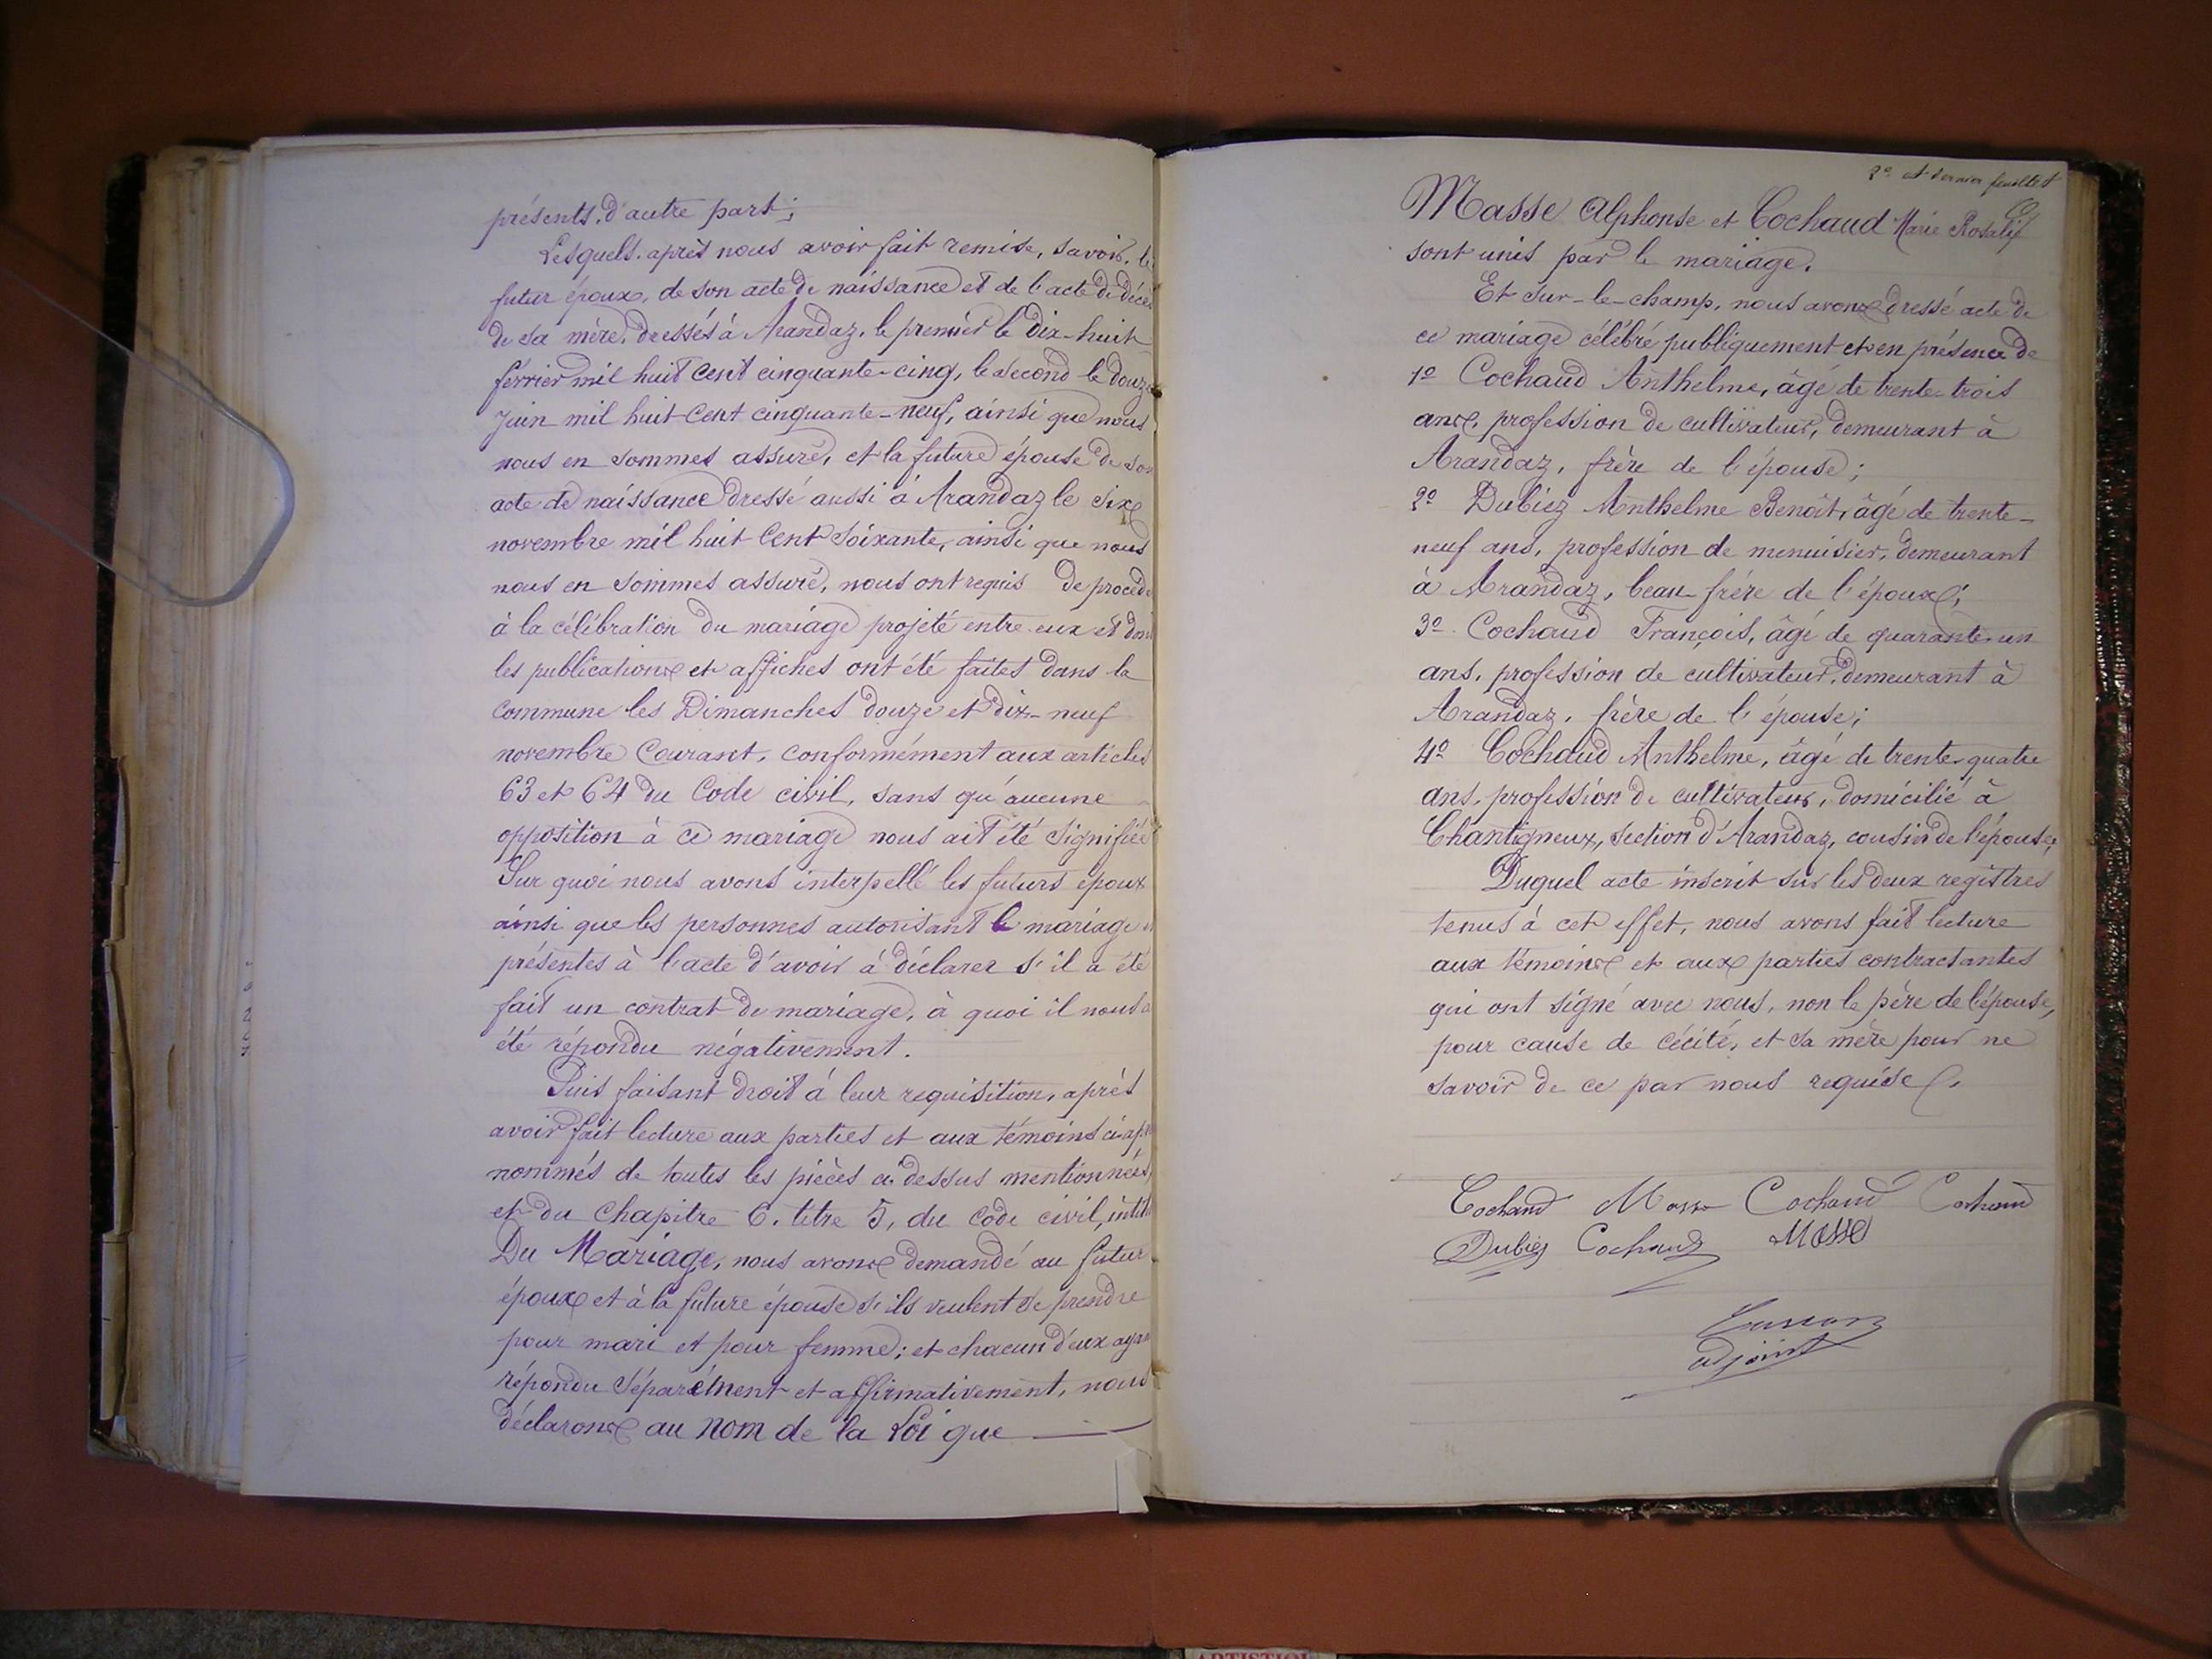 présents, d'autre part;
Lesquels, après nous avoir fait remise, savoir, le
futur époux, de son acte de naissance et de l'acte de décès
de sa mère, dressés à Arandaz, le premier le dix-huit
février mil huit cent cinquante-cinq, le second le douze
Juin mil huit cent cinquante-neuf, ainsi que nous
nous en sommes assuré, et la future épouse de son
acte de naissance dressé aussi à Arandaz le six
novembre mil huit cent soixante, ainsi que nous
nous en sommes assuré, nous ont requis de procéde
à la célébration du mariage projeté entre eux et dont
les publications et affiches ont été faites dans la
commune les Dimanches douze et dix-neuf
novembre courant, conformément aux articles
63 et 64 du Code civil, sans qu'aucune
opposition à ce mariage nous ait été signifiée
Sur quoi nous avons interpellé les futurs époux
ainsi que les personnes autorisant le mariage
présentes à l'acte d'avoir à déclarer s'il a été
fait un contrat de mariage, à quoi il nous a
été répondu négativement.
Puis faisant droit à leur requisition, après
avoir fait lecture aux parties et aux témoins ci-ap
nommés de toutes les pièces ci-dessus mentionnées,
et du chapitre 6, titre 5, du Code civil, intit
Du Mariage, nous avons demandé au futur
époux et à la future épouse s'ils veulent se prendre
pour mari et pour femme; et chacun d'eux aya
répondu séparément et affirmativement, nous
déclarons au nom de la Loi que
2e et dernier feuillet
Masse Alphonse et Cochaud Marie Rosalie
sont unis par le mariage.
Et sur-le-champ, nous avons dressé acte de
ce mariage célébré publiquement et en présence de
1o Cochaud Anthelme, âgé de trente-trois
ans, profession de cultivateur, demeurant à
Arandaz, frère de l'épouse;
2o Dubiez Anthelme Benoit, âgé de trente-
neuf ans, profession de menuisier, demeurant
à Arandaz, beau-frère de l'époux;
3o Cochaud François, âgé de quarante-un
ans, profession de cultivateur, demeurant à
Arandaz, frère de l'épouse;
4o Cochaud Anthelme, âgé de trente-quatre
ans, profession de cultivateur, domicilié à
Chantigneux, section d'Arandaz, cousin de l'épouse;
Duquel acte inscrit sur les deux registres
tenus à cet effet, nous avons fait lecture
aux témoins et aux parties contractantes
qui ont signé avec nous, non le père de l'épouse,
pour cause de cécité, et sa mère pour ne
savoir de ce par nous requise.
Cochaud Masse Cochaud Cochaud
Dubiez Cochaud Masse
adjoint